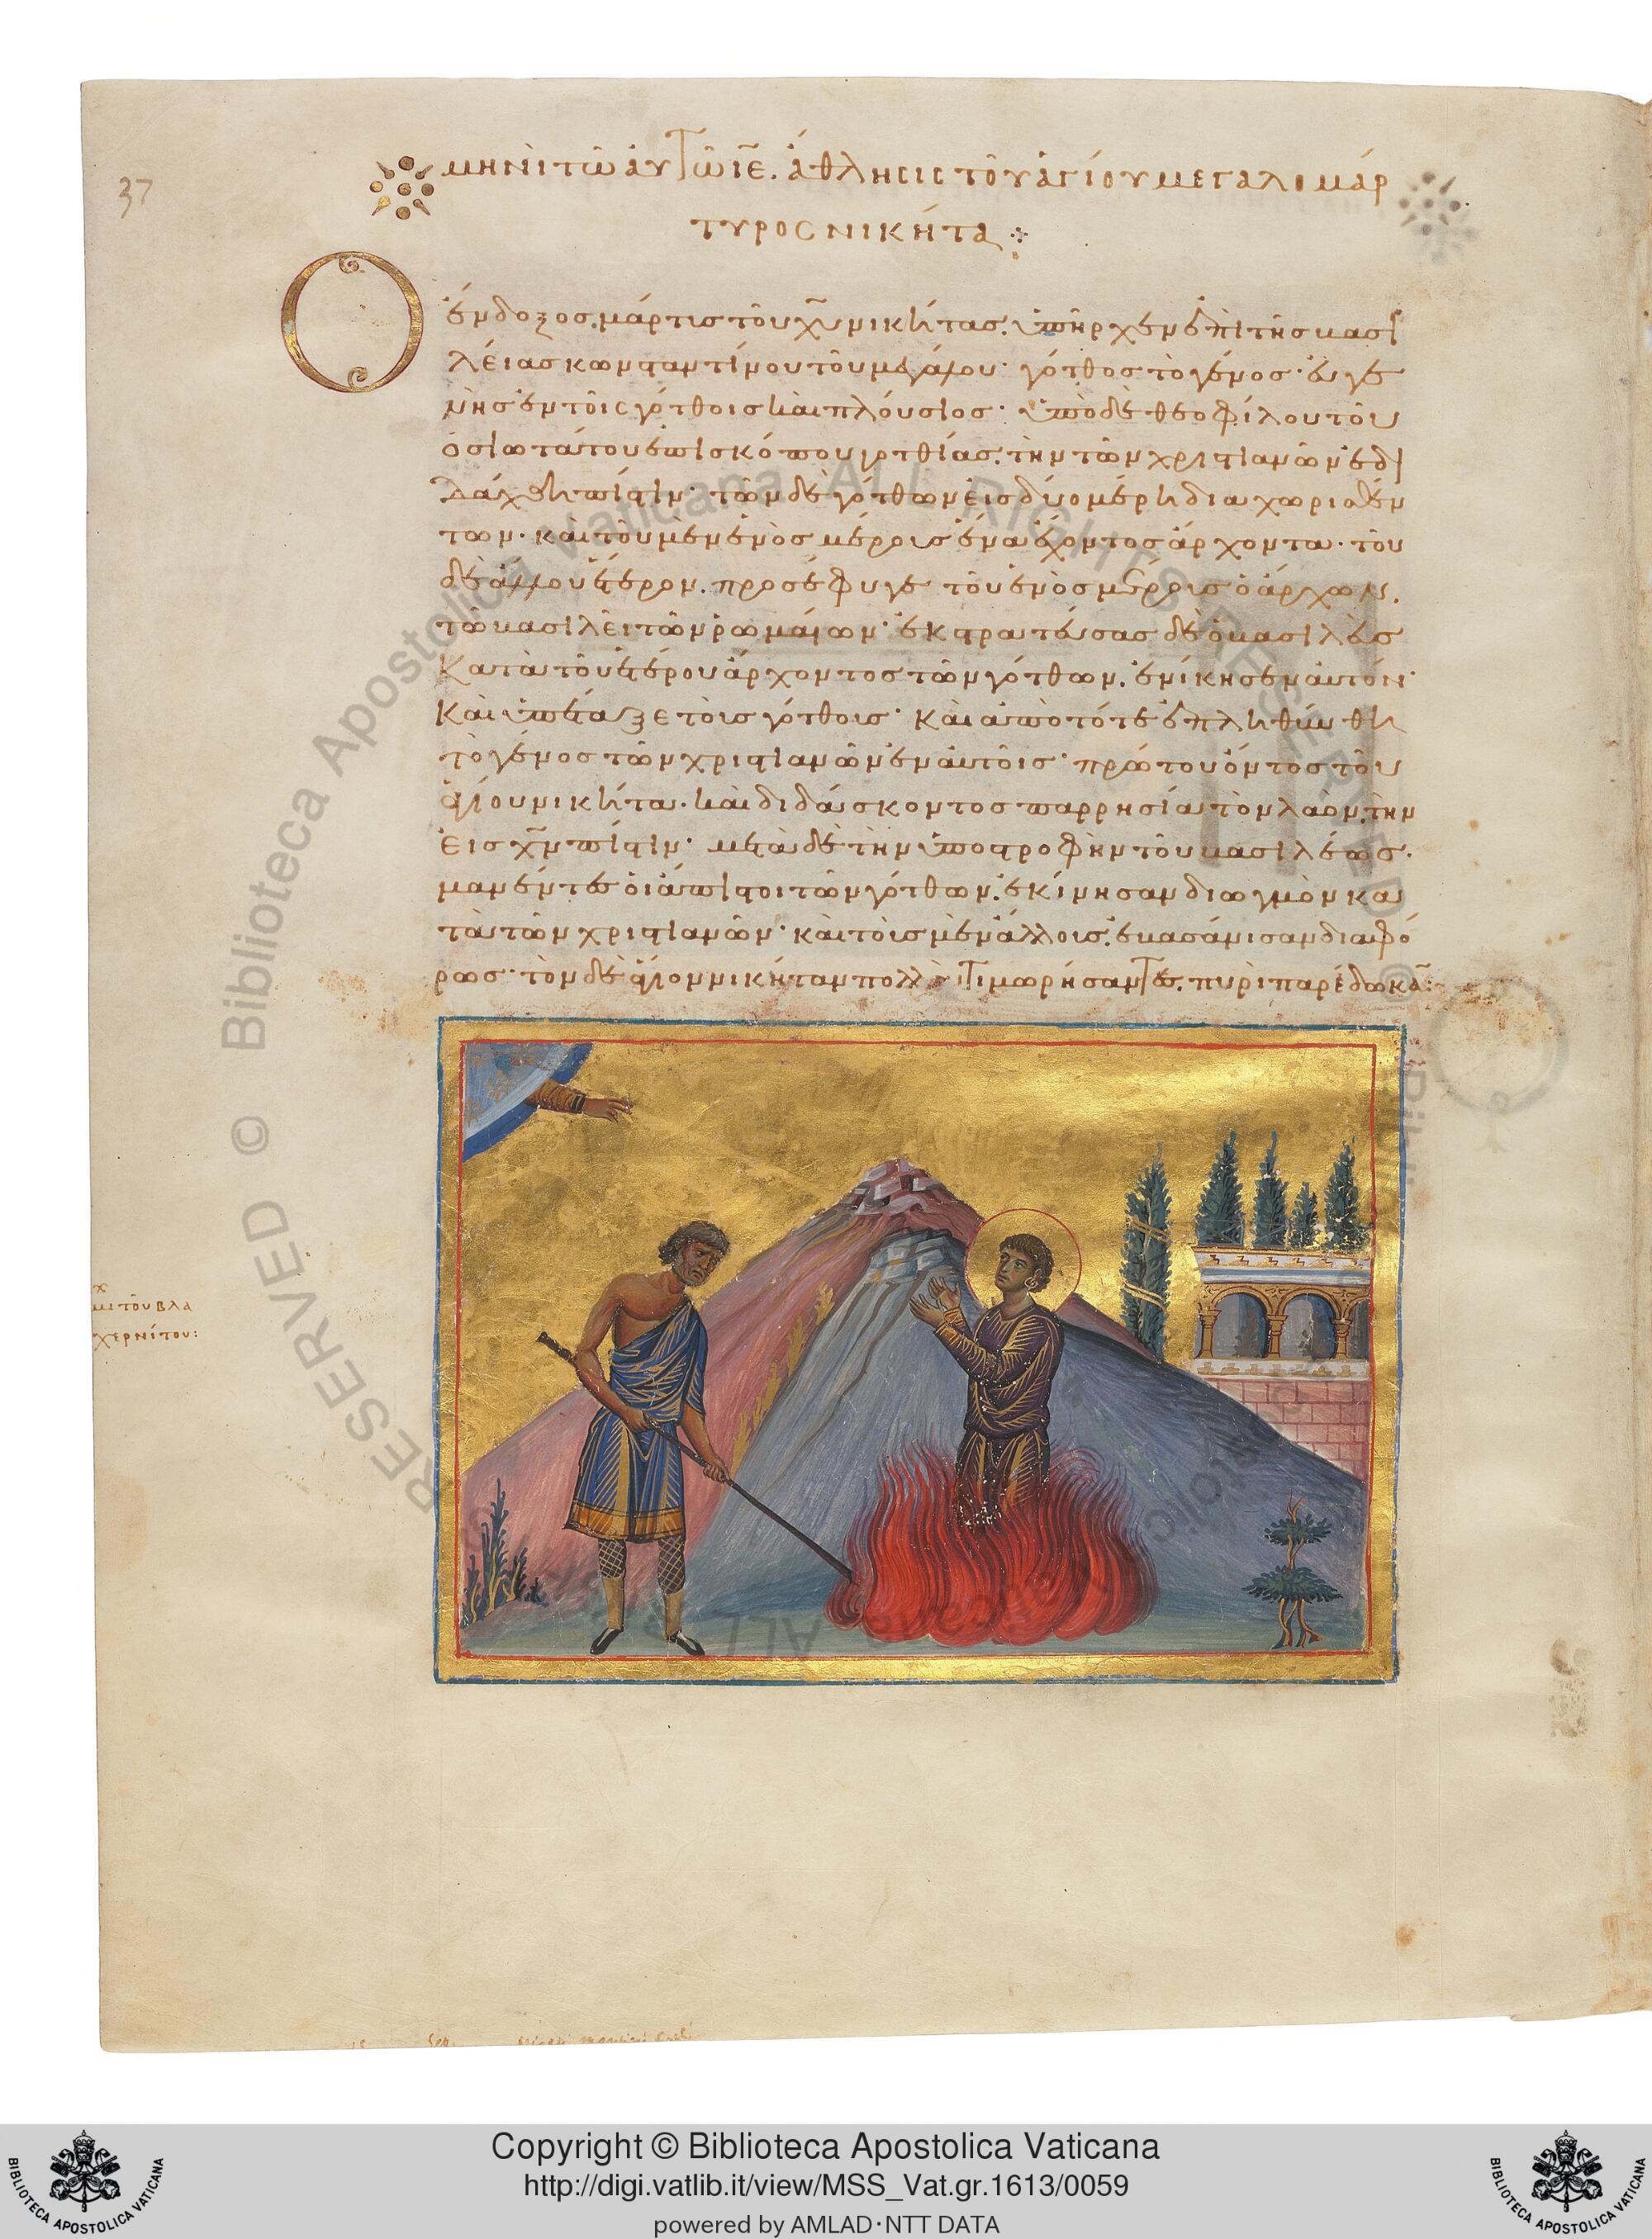 37
μηνὶ τῶ αὐτῶ ιε̄. ἄθλησις τοῦ ἁγίου μεγαλομάρ
τυρος νικήτα
Ὁ ἔνδοξος μάρτις τοῦ χῦ νικήτας. ὑπῆρχεν ἐπὶ τῆς βασι
λείας κωνσταντίνου τοῦ μεγάλου· γότθος τὸ γένος· εὐγε
νὴς ἐν τοῖς γότθοις καὶ πλούσιος· ὑπὸ δὲ θεοφίλου τοῦ
ὁσιωτάτου ἐπισκόπου γοτθίας. τὴν τῶν χριστιανῶν ἐδι
δάχθη πίστιν· τῶν δὲ γότθων εἰς δύο μέρη διαχωρισθέν
των· καὶ τοῦ μὲν ἑνὸς μέρους ἕνα ἔχοντος ἄρχοντα· τοῦ
δὲ ἄλλου ἕτερον. προσέφυγε τοῦ ἑνὸς μέρους ὁ ἄρχων.
τῶ βασιλεῖ τῶν ῥωμαίων· ἐκστρατεύσας δὲ ὁ βασιλεὺς
κατὰ τοῦ ἑτέρου ἄρχοντος τῶν γότθων. ἐνίκησεν αὐτόν·
καὶ ὑπέταξε τοῖς γότθοις· καὶ ἀπὸ τότε ἐπληθύνθη
τὸ γένος τῶν χριστιανῶν ἐν αὐτοῖς· πρώτου ὄντος τοῦ
ἁγίου νικήτα. καὶ διδάσκοντος παρρησία τὸν λαὸν. τὴν
εἰς χν̄ πίστιν· μετὰ δὲ τὴν ὑποστροφὴν τοῦ βασιλέως.
μανέντες οἱ ἄπιστοι τῶν γότθων. ἐκίνησαν διωγμὸν κα
τὰ τῶν χριστιανῶν· καὶ τοὺς μὲν ἄλλους. ἐβασάνισαν διαφό
ρως· τὸν δὲ ἅγιον νικήταν πολλὰ τιμωρήσαντες. πυρὶ παρέδωκᾱ:
χ
μι τοῦ βλα
χερνίτου:
RESERVED © Biblioteca Apostolica Vaticana ALL RIGHTS RESERVED ©
BIBLIOTECA APOSTOLICA VATICANA
Copyright © Biblioteca Apostolica Vaticana
http://digi.vatlib.it/view/MSS_Vat.gr.1613/0059
powered by AMLAD·NTT DATA
BIBLIOTECA APOSTOLICA VATICANA